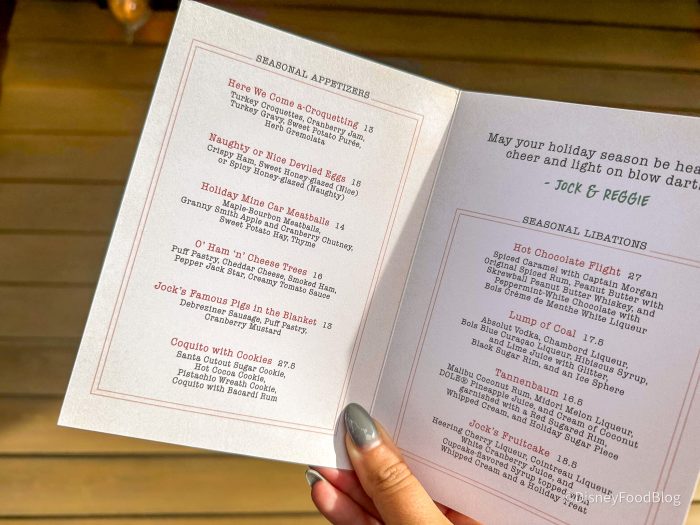 SEASONAL APPETIZERS
Here We Come a-Croquetting 13
Turkey Croquettes, Cranberry Jam,
Turkey Gravy, Sweet Potato Purée,
Herb Gremolata
Naughty or Nice Deviled Eggs 15
Crispy Ham, Sweet Honey-glazed (Nice)
or Spicy Honey-glazed (Naughty)
Holiday Mine Car Meatballs 14
Maple-Bourbon Meatballs,
Granny Smith Apple and Cranberry Chutney,
Sweet Potato Hay, Thyme
O' Ham 'n' Cheese Trees 16
Puff Pastry, Cheddar Cheese, Smoked Ham,
Pepper Jack Star, Creamy Tomato Sauce
Jock's Famous Pigs in the Blanket 13
Debreziner Sausage, Puff Pastry,
Cranberry Mustard
Coquito with Cookies 27.5
Santa Cutout Sugar Cookie,
Hot Cocoa Cookie,
Pistachio Wreath Cookie,
Coquito with Bacardi Rum
May your holiday season be
cheer and light on blow
- JOCK & REGGIE
SEASONAL LIBATIONS
Hot Chocolate Flight 27
Spiced Caramel with Captain Morgan
Original Spiced Rum, Peanut Butter with
Skrewball Peanut Butter Whiskey, and
Peppermint-White Chocolate with
Bols Crème de Menthe White Liqueur
Lump of Coal 17.5
Absolut Vodka, Chambord Liqueur,
Bols Blue Curaçao Liqueur, Hibiscus Syrup,
and Lime Juice with Glitter,
Black Sugar Rim, and an Ice Sphere
Tannenbaum 16.5
Malibu Coconut Rum, Midori Melon Liqueur,
DOLE® Pineapple Juice, and Cream of Coconut
garnished with a Red Sugared Rim,
Whipped Cream, and Holiday Sugar Piece
Jock's Fruitcake 18.5
Heering Cherry Liqueur, Cointreau Liqueur,
White Cranberry Juice, and
Cupcake-flavored Syrup topped with
Whipped Cream and a Holiday Treat
©DisneyFoodBlog